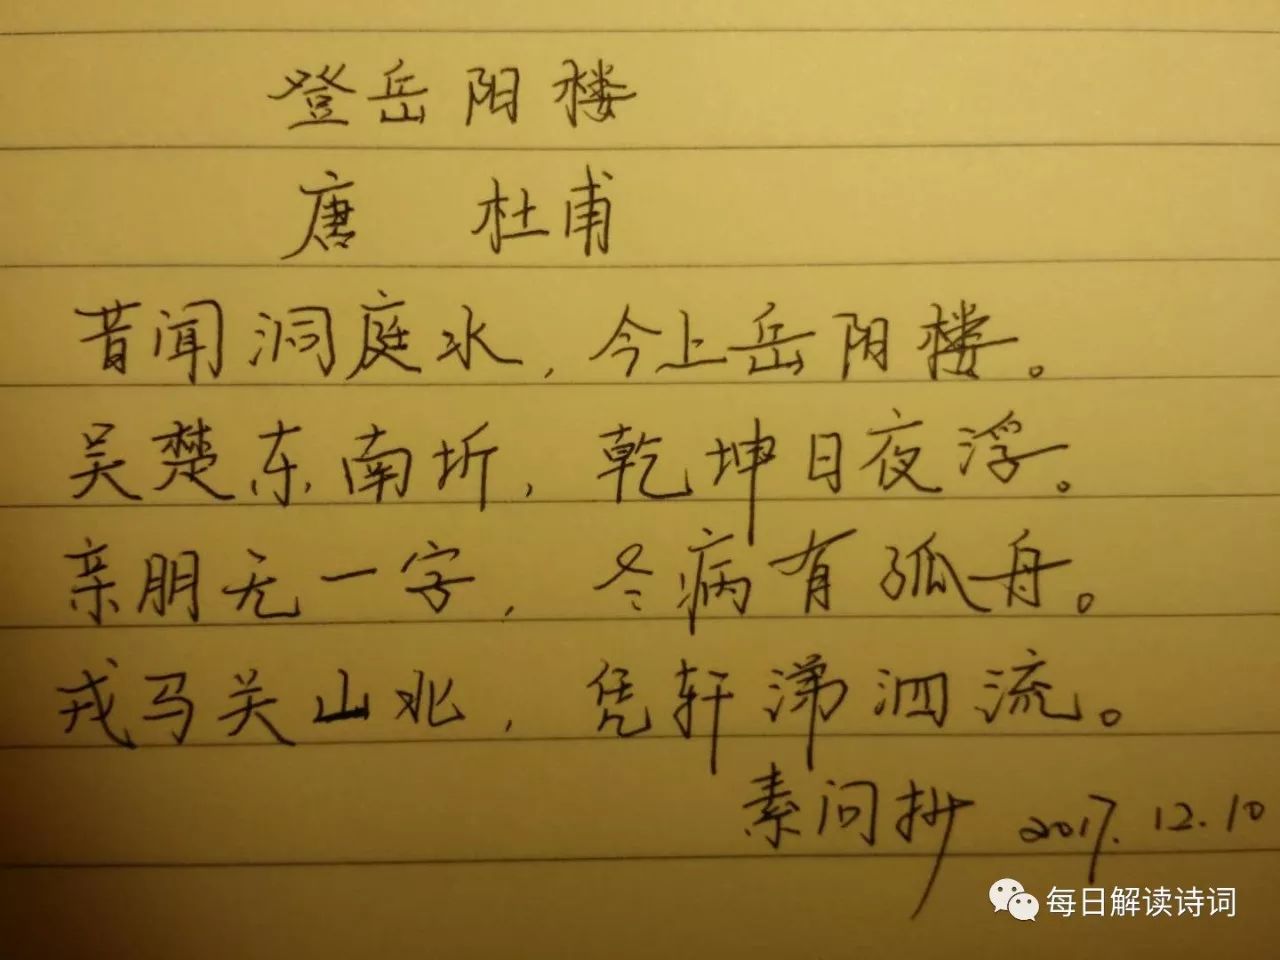 登岳阳楼
唐 杜甫
昔闻洞庭水，今上岳阳楼。
吴楚东南圻，乾坤日夜浮。
亲朋无一字，冬病有孤舟。
戎马关山北，凭轩涕泗流。
素问抄 2017.12.10
每日解读诗词